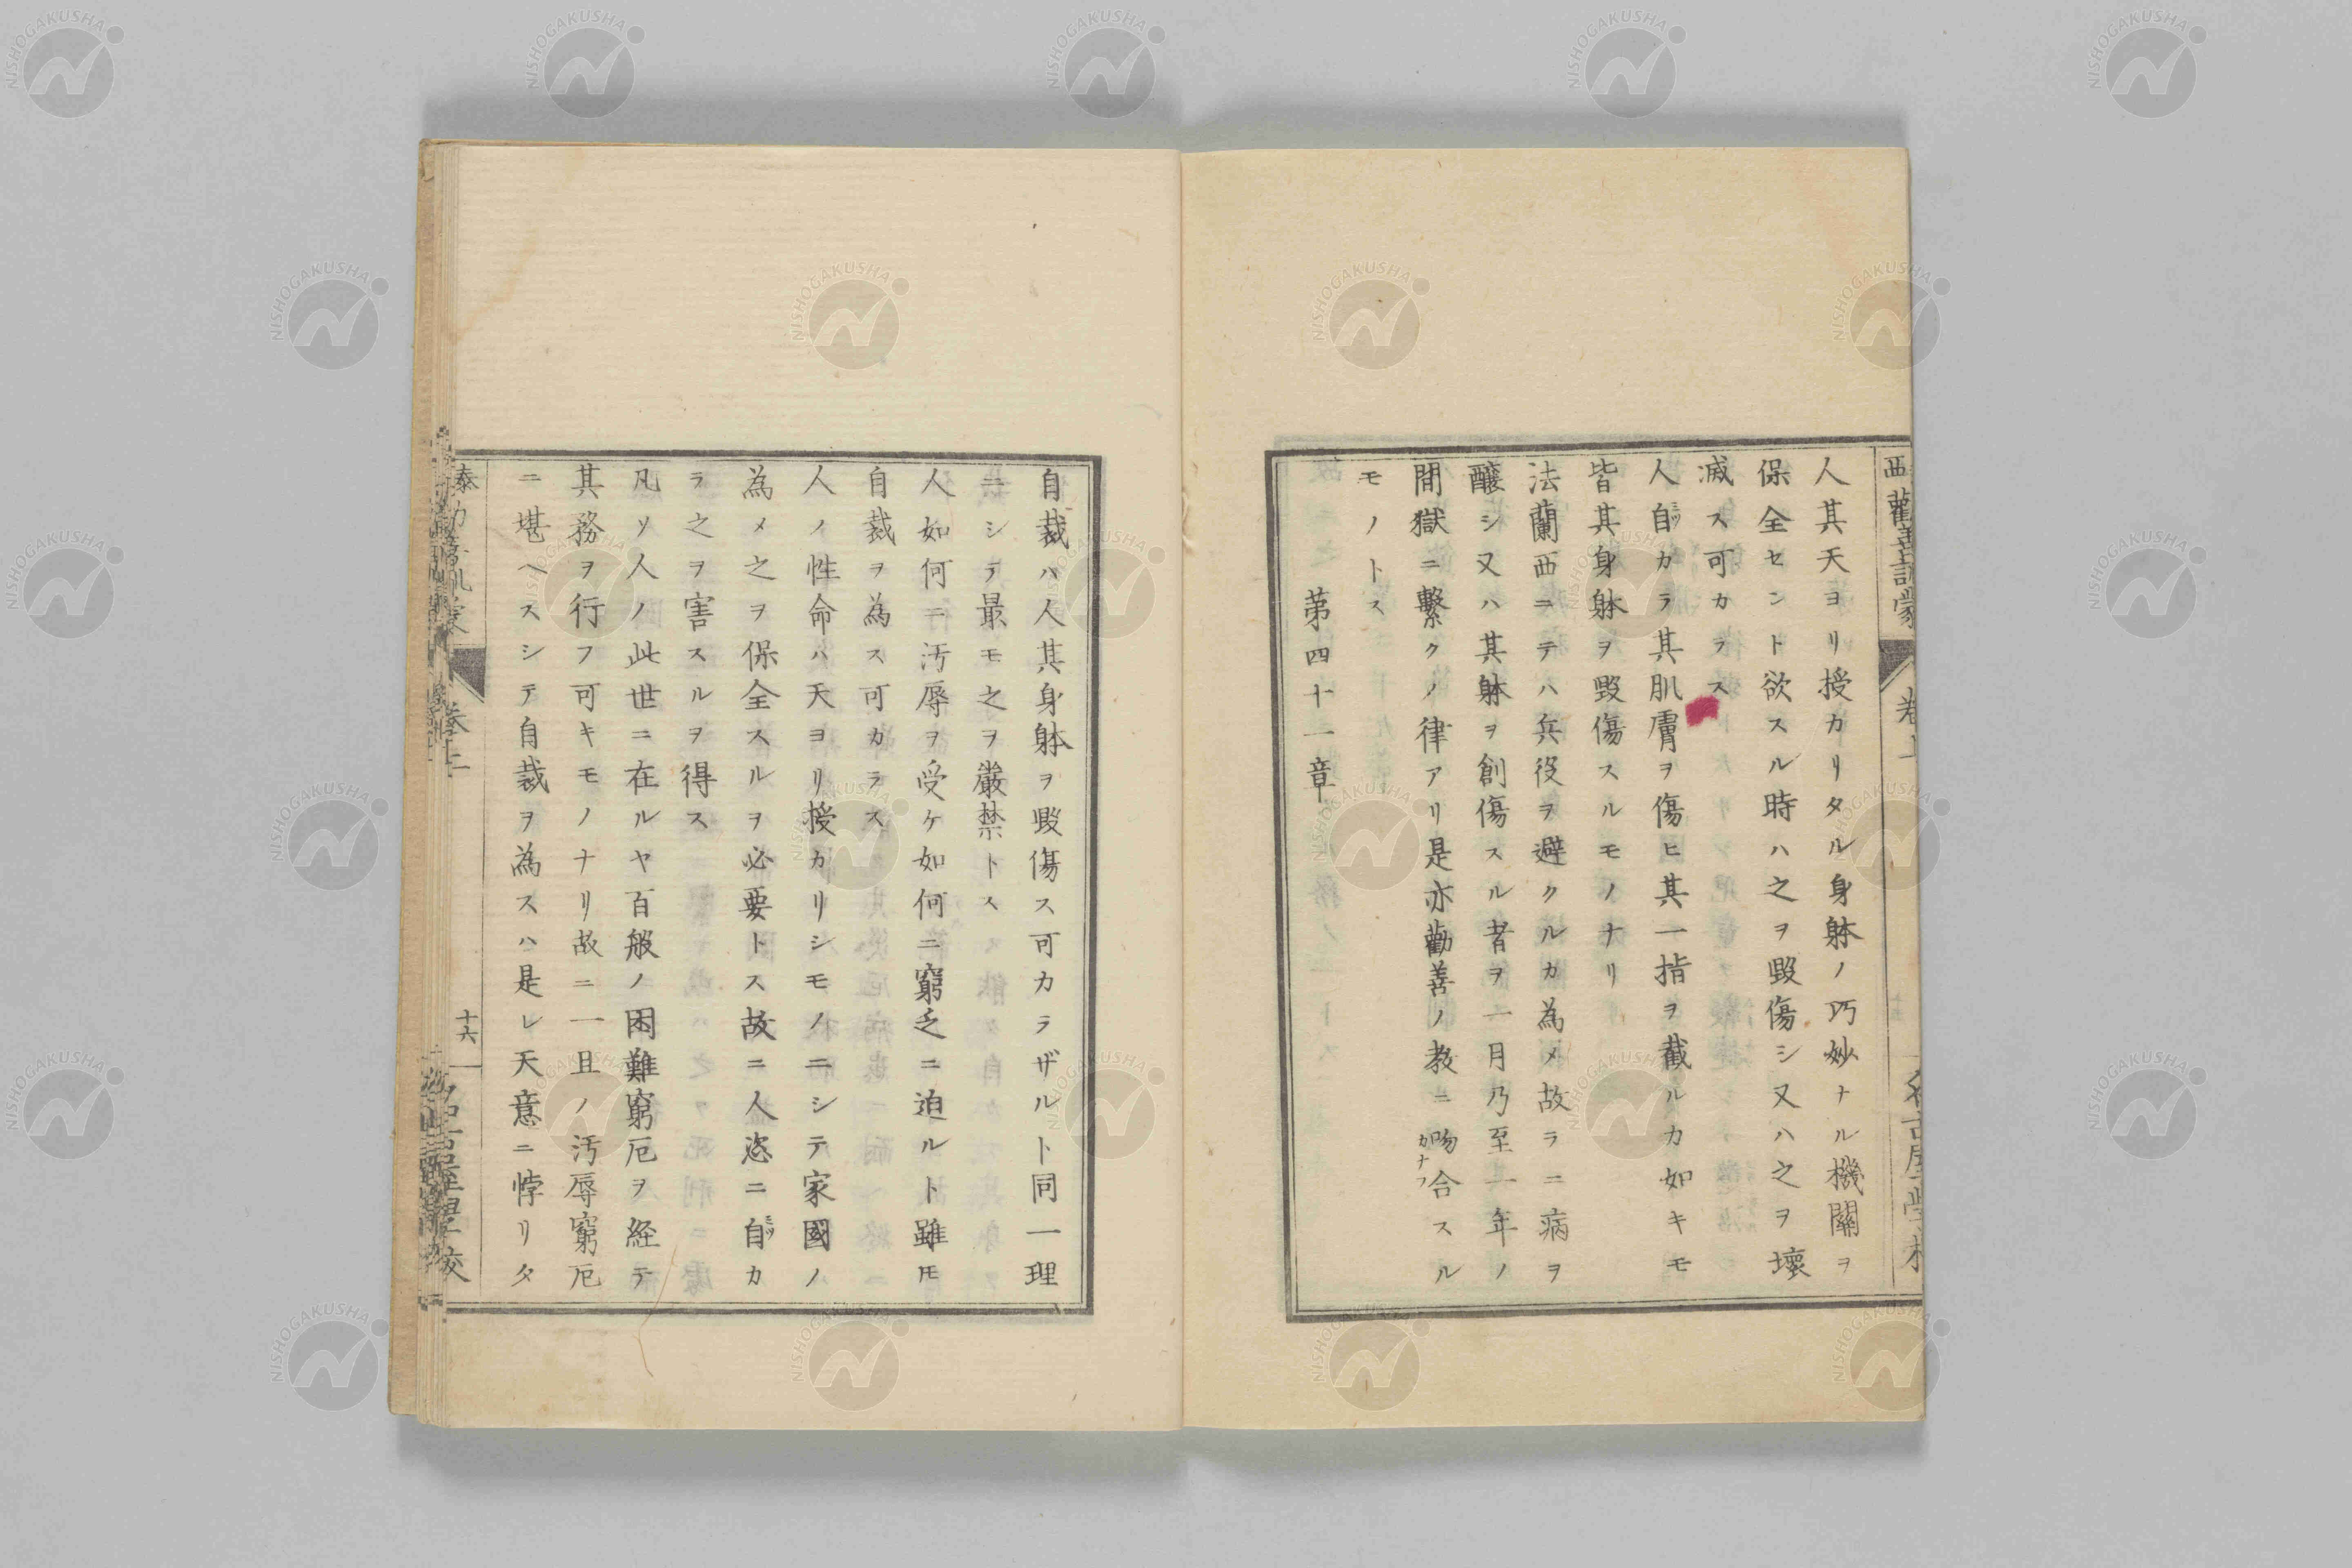 西勸善訓蒙
人其天ヨリ授カリタル身躰ノ巧妙ナル機關ヲ
保全セント欲スル時ハ之ヲ毀傷シ又ハ之ヲ壞
滅ス可カラス
人自カラ其肌膚ヲ傷ヒ其一指ヲ截ルカ如キモ
皆其身躰ヲ毀傷スルモノナリ
法蘭西ニテハ兵役ヲ避クルカ為メ故ラニ病ヲ
釀シ又ハ其躰ヲ創傷スル者ヲ一月乃至一年ノ
間獄ニ繫クノ律アリ是亦勸善ノ教ニ吻合スル
モノトス
第四十一章
自裁ハ人其身躰ヲ毀傷ス可カラザルト同一理
ニシテ最モ之ヲ嚴禁トス
人如何ニ汚辱ヲ受ケ如何ニ窮乏ニ迫ルト雖モ
自裁ヲ為ス可カラス
人ノ性命ハ天ヨリ授カリシモノニシテ家國ノ
為メ之ヲ保全スルヲ必要トス故ニ人恣ニ自カ
ラ之ヲ害スルヲ得ス
凡ソ人ノ此世ニ在ルヤ百般ノ困難窮厄ヲ経テ
其務ヲ行フ可キモノナリ故ニ一且ノ汚辱窮厄
ニ堪ヘスシテ自裁ヲ為スハ是レ天意ニ悖リタ
十六
NISHOGAKUSHA